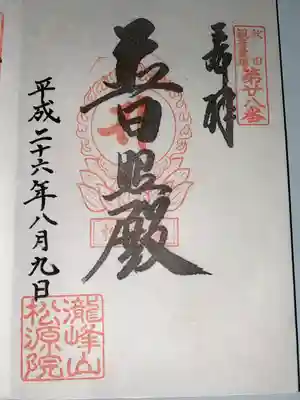 秋田
観音霊場
第廿八番
奉拝
普照殿
平成二十六年八月九日
瀧峰山
松源院